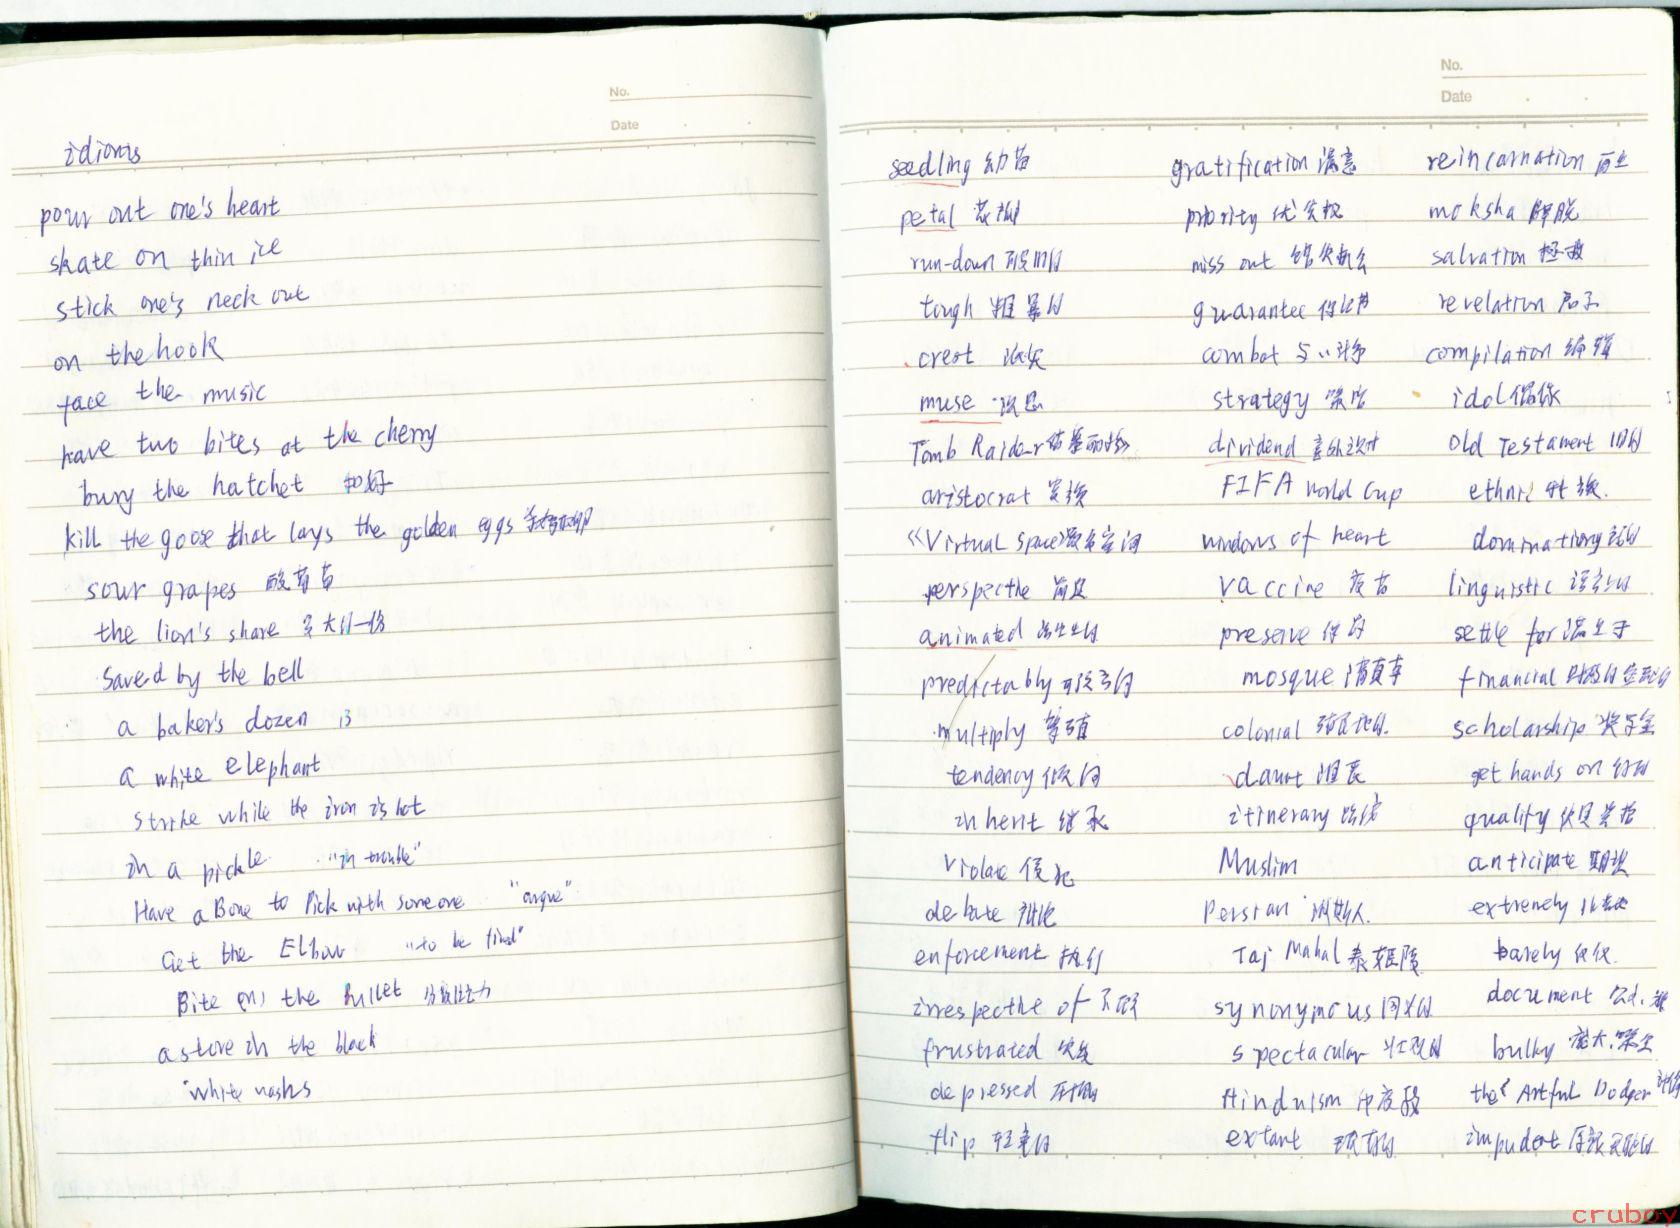 No.
Date
idioms
pour out one's heart
skate on thin ice
stick one's neck out
on the hook
face the music
have two bites at the cherry
bury the hatchet 和好
kill the goose that lays the golden eggs 杀鸡取卵
sour grapes 酸葡萄
the lion's share 最大的一份
Saved by the bell
a baker's dozen 13
a white elephant
strike while the iron is hot
in a pickle "in trouble"
Have a Bone to Pick with someone "argue"
Get the Elbow "to be fired"
Bite (on) the bullet
a store in the black
white
No.
Date
seedling 幼苗 gratification 满意 reincarnation 再生
petal 花瓣 priority 优先权 moksha 解脱
run-down 破旧的 miss out 错失机会 salvation 拯救
tough 粗暴的 guarantee 保证 revelation 启示
crest 波尖 combat 与..战 compilation 编辑
muse 沉思 strategy 策略 idol 偶像
Tomb Raider 古墓丽影 dividend 意外 Old Testament 旧约
aristocrat 贵族 FIFA World Cup ethnic 种族.
《Virtual Space》 虚拟空间 windows of heart
perspective 前景 vaccine 疫苗 linguistic 语言的
animated 活生生的 preserve 保存 settle for 满足于
predictably 可预言的 mosque 清真寺 financial
multiply 繁殖 colonial 殖民地的. scholarship 奖学金
tendency 倾向 daunt 阻 get hands on
inherit 继承 itinerary 路线 qualify 使具资格
violate 侵犯 Muslim anticipate 期望
debate 辩论 Persian 波斯人. extremely 非常地
enforcement 执行 Taj Mahal 泰姬陵 barely 仅仅.
irrespective of 不顾 synonymous 同义的 document
frustrated 失败 spectacular 壮观的 bulky 庞大.
depressed 压抑的 Hinduism 印度教 the Artful Dodger
flip 轻率的 extant 现存的 impudent 厚颜无耻的
cruboy